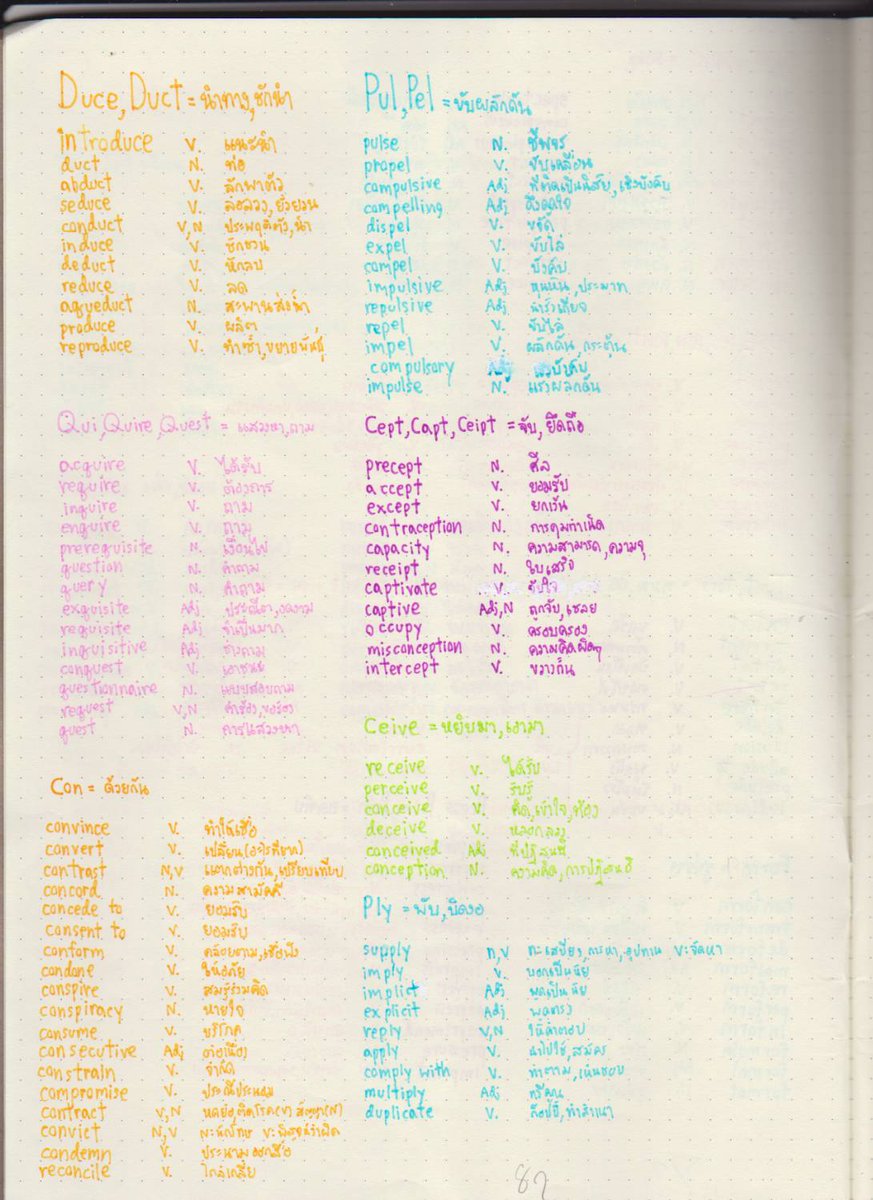 Duce, Duct = นำทาง, ชักนำ
introduce V. แนะนำ
duct N. ท่อ
abduct V. ลักพาตัว
seduce V. ล่อลวง, ยั่วยวน
conduct V,N ประพฤติตัว, นำ
induce V. ชักชวน
deduct V. หักลบ
reduce V. ลด
aqueduct N. สะพานส่งน้ำ
produce V. ผลิต
reproduce V. ทำซ้ำ, ขยายพันธุ์
Pul, Pel = ขับผลักดัน
pulse N. ชีพจร
propel V. ขับเคลื่อน
compulsive Adj ที่ติดเป็นนิสัย, เชิงบังคับ
compelling Adj ดึงดูดใจ
dispel V. ขจัด
expel V. ขับไล่
compel V. บังคับ
impulsive Adj หุนหัน, ประมาท
repulsive Adj น่ารังเกียจ
repel V. ขับไล่
impel V. ผลักดัน, กระตุ้น
compulsory Adj เชิงบังคับ
impulse N. แรงผลักดัน
Qui, Quire, Quest = แสวงหา, ถาม
acquire V. ได้รับ
require V. ต้องการ
inquire V. ถาม
enquire V. ถาม
prerequisite N. เงื่อนไข
question N. คำถาม
query N. คำถาม
exquisite Adj ประณีต, งดงาม
requisite Adj จำเป็นมาก
inquisitive Adj ช่างถาม
conquest V. เอาชนะ
questionnaire N. แบบสอบถาม
request V,N คำร้อง, ขอร้อง
quest N. การแสวงหา
Cept, Capt, Ceipt = จับ, ยึดถือ
precept N. ศีล
accept V. ยอมรับ
except V. ยกเว้น
contraception N. การคุมกำเนิด
capacity N. ความสามารถ, ความจุ
receipt N. ใบเสร็จ
captivate V. จับใจ
captive Adj,N ถูกจับ, เชลย
occupy V. ครอบครอง
misconception N. ความคิดผิดๆ
intercept V. ขวางกั้น
Ceive = หยิบมา, เอามา
receive V. ได้รับ
perceive V. รับรู้
conceive V. คิด, เข้าใจ, ท้อง
deceive V. หลอกลวง
conceived Adj ที่ปฏิสนธิ
conception N. ความคิด, การปฏิสนธิ
Con = ด้วยกัน
convince V. ทำให้เชื่อ
convert V. เปลี่ยน
contrast N,V แตกต่างกัน, เปรียบเทียบ
concord N. ความสามัคคี
concede to V. ยอมรับ
consent to V. ยอมรับ
conform V. คล้อยตาม, เชื่อฟัง
condone V. ให้อภัย
conspire V. สมรู้ร่วมคิด
conspiracy N. หายใจ
consume V. บริโภค
consecutive Adj ต่อเนื่อง
constrain V. จำกัด
compromise V. ประณีประนอม
contract V,N หดย่อ, ติดโรค(V) สัญญา(N)
convict N,V N:นักโทษ V:พิสูจน์ว่าผิด
condemn V. ประนาม
reconcile V. ไกล่เกลี่ย
Ply = พับ, บิดงอ
supply n,v n:เสบียง, อุปทาน v:จัดหา
imply V. บอกเป็นนัย
implict Adj พูดเป็นนัย
explicit Adj พูดตรง
reply V,N ให้คำตอบ
apply V. นำไปใช้, สมัคร
comply with V. ทำตาม, เห็นชอบ
multiply Adj ทวีคูณ
duplicate V. ก๊อปปี้, ทำสำเนา
87